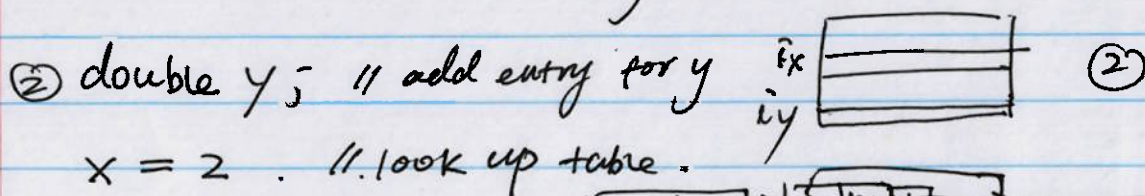 ② double y; // add entry for y ix ②
iy
x = 2 . // look up table.